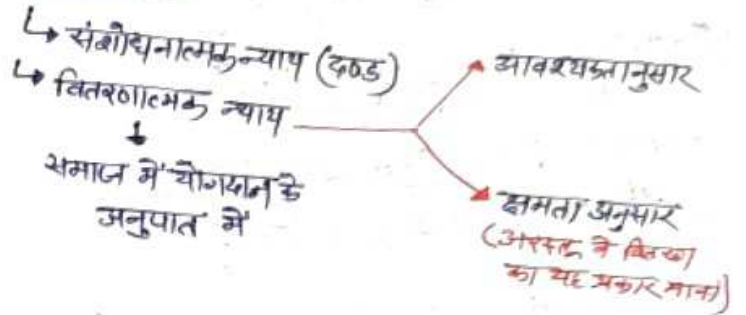 ↳ संशोधनात्मक न्याय (दण्ड)
↳ वितरणात्मक न्याय
समाज में योगदान के
अनुपात में
आवश्यकतानुसार
क्षमता अनुसार
(अरस्तू ने वितरण
का यह प्रकार माना)